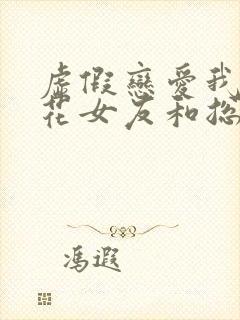 虛假戀愛我
花女友和総
馮遐